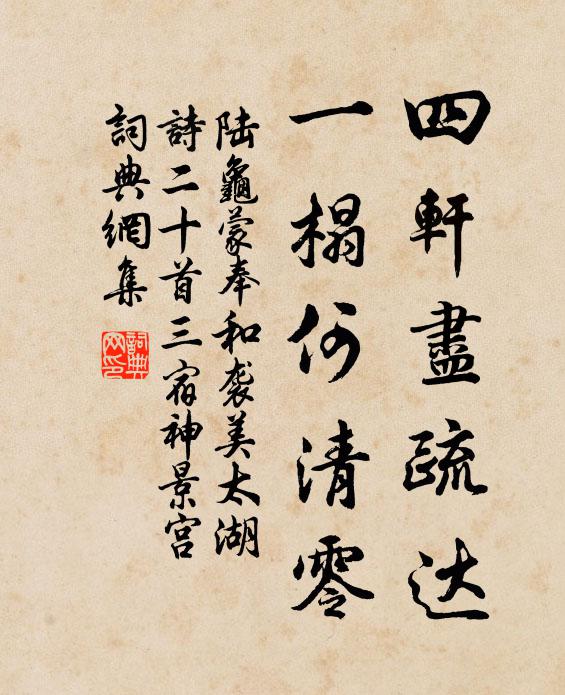 四軒盡疏达
一榻何清零
陆龜蒙奉和袭美太湖
詩二十首三宿神景宫
詞典網集
詞典
网印